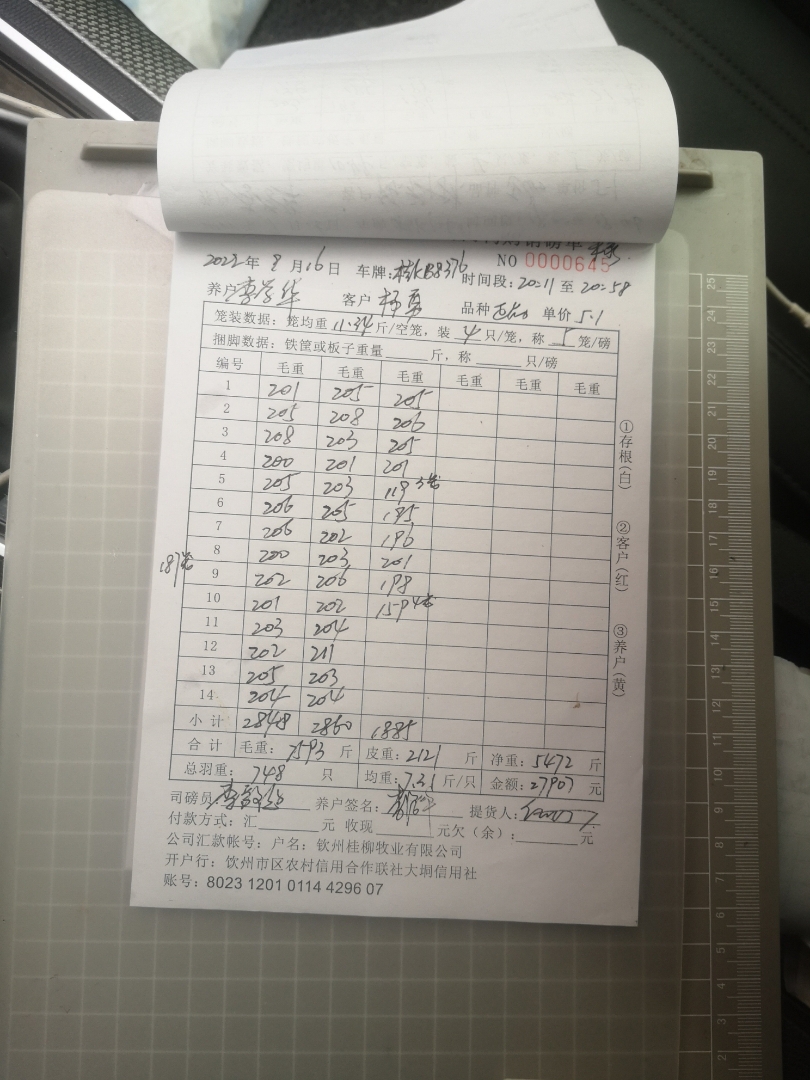 NO 0000645
2022年8月16日 车牌:桂KB8376 时间段:20:11至20:58
养户李学华 客户杨勇 品种 单价5.1
笼装数据:笼均重11.34斤/空笼,装4只/笼,称5笼/磅
捆脚数据:铁筐或板子重量____斤,称____只/磅
编号 毛重 毛重 毛重 毛重 毛重 毛重
1 201 205 205
2 205 208 206
3 208 203 205
4 200 201 201
5 205 203 119 3笼
6 206 205 195
7 206 202 196
8 200 203 201
187笼
9 202 206 198
10 201 202 159 4笼
11 203 204
12 202 211
13 205 203
14 204 204
小计 2848 2860 1885
合计 毛重:7593斤 皮重:2121斤 净重:5472斤
总羽重:748只 均重:7.31斤/只 金额:27907元
司磅员: 养户签名: 提货人:
付款方式:汇____元 收现____元欠(余):____元
公司汇款帐号:户名:钦州桂柳牧业有限公司
开户行:钦州市区农村信用合作联社大垌信用社
账号:8023 1201 0114 4296 07
①存根(白) ②客户(红) ③养户(黄)
25
22
21
20
19
18
17
16
15
14
13
12
11
9
7
6
5
4
3
2